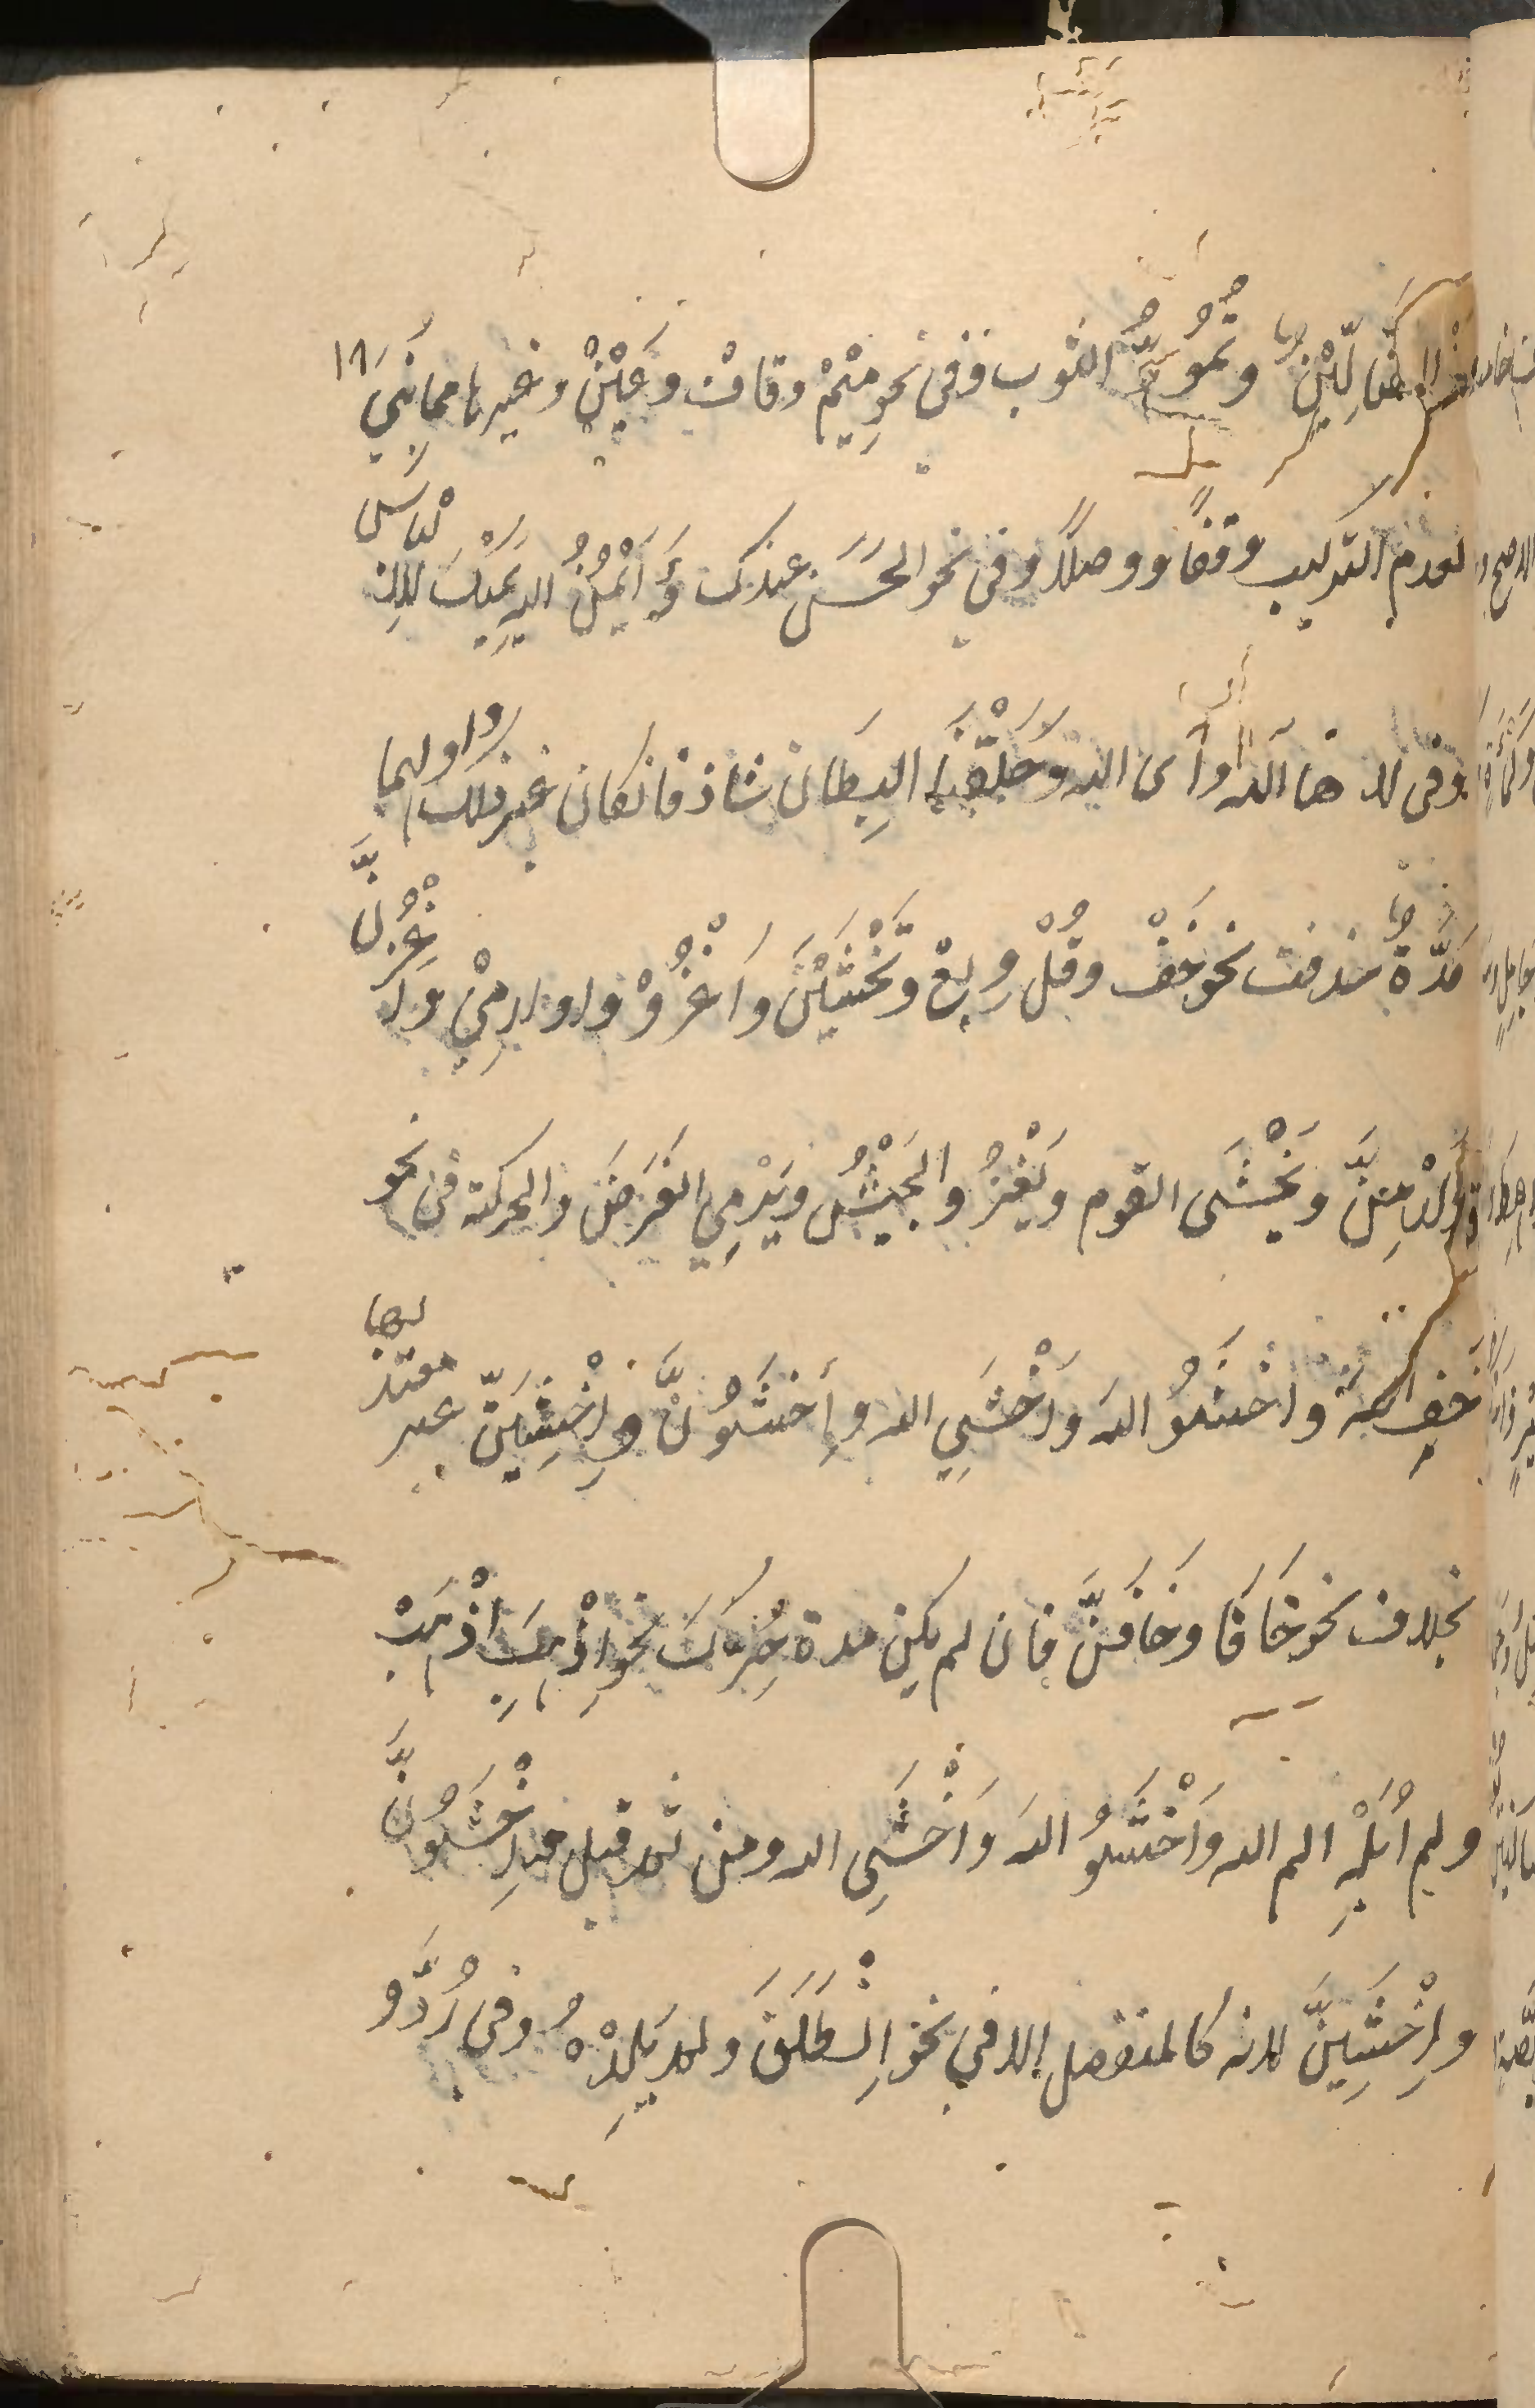 الضَّالِّيْنَ وتُمُودَّ الثوب وفى نحوِ مِيْمْ وقافْ وعَيْنْ وغيرها مما بُنِيَ ١٨
لعدم التركيب وقفًا ووصلًا وفي نحو الحَسَن عندك وَأَيْمُنُ الله يَمِيْنُكَ للالتباس
وفى لا ها آلله وأى الله وحَلْقَتَا البِطَان شاذ فانكان غير ذلك واولهما
مَدَّةٌ حذفت نحو خَفْ وقُلْ وبِعْ وتَخْشَيْنَ واُغْزُوْا وارمِيْ واُغْزُنَّ
وارْمِنَّ ويَخْشَى القوم ويَغْزُو الجَيْشُ ويَرْمِي الغَرَضَ والحركة فى نحو
خَفِ الله واخشَوُا الله وَاخْشَيِ الله واخشَوُنَّ واِخْشَيِنَّ غير معتد بها
بخلاف نحو خَافَا وخَافَنَّ فان لم يكن مدة حُرِّكَ نحو اِذْهَبِ اذْهَبْ
ولم اُبَلِهْ الم الله وَاخْشَوُا الله وَاخْشَيِ الله ومن ثمه قيل اِخْشَوُنَّ
واِخْشَيِنَّ لانه كالمنفصل إلا في نحو اِنْطَلْقَ ولم يَلْدَهُ وفى رُدَّو